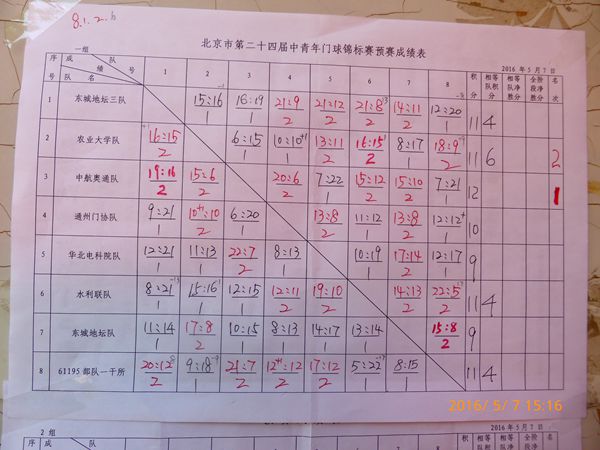 8.1.2.6
北京市第二十四届中青年门球锦标赛预赛成绩表
一组 2016年5月7日
序号 成绩 队号 队名 1 2 3 4 5 6 7 8 积分 相等队积分 相等队净胜分 全阶段净胜分 名次
1 东城地坛三队 15:16 1 16:19 1 21:9 2 21:12 2 21:8 2 14:11 2 12:20 1 11 4
2 农业大学队 16:15 2 6:15 1 10:10+1 1 13:11 2 16:15 2 8:17 1 18:9 2 11 6 2
3 中航奥通队 19:16 2 15:6 2 20:6 2 7:22 1 15:12 2 15:10 2 7:21 1 12 1
4 通州门协队 9:21 1 10+1:10 2 6:20 1 13:8 2 11:12 1 13:8 2 12:12+ 1 10
5 华北电科院队 12:21 1 11:13 1 22:7 2 8:13 1 10:19 1 17:14 2 12:17 1 9
6 水利联队 8:21 1 15:16 1 12:15 1 12:11 2 19:10 2 14:13 2 22:5 2 11 4
7 东城地坛队 11:14 1 17:8 2 10:15 1 8:13 1 14:17 1 13:14 1 15:8 2 9
8 61195部队一干所 20:12 2 9:18 1 21:7 2 12+1:12 2 17:12 2 5:22 1 8:15 1 11 4
2016/ 5/ 7 15:16
2组 2016年5月7日
序 成 队 积 相等 相等 全阶 名